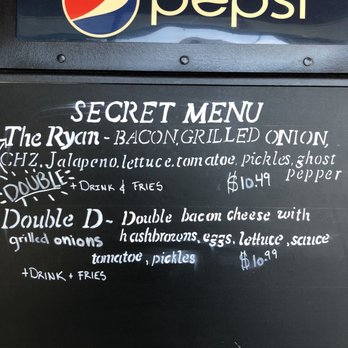 pepsi
SECRET MENU
The Ryan - BACON, GRILLED ONION,
CHZ, Jalapeno, lettuce, tomatoe, pickles, ghost
pepper
DOUBLE
+ DRINK & FRIES
$10.49
Double D - Double bacon cheese with
grilled onions hashbrowns, eggs, lettuce, sauce
tomatoe, pickles $10.99
+DRINK + FRIES